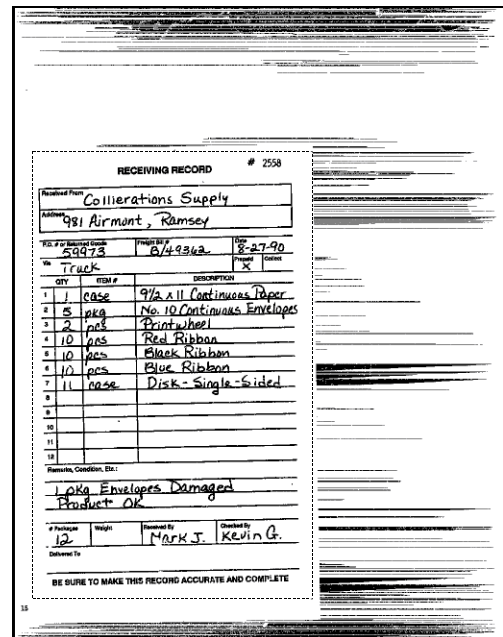 # 2558
RECEIVING RECORD
Received From Collierations Supply
Address 981 Airmont, Ramsey
P.O. # or Returned Goods 59973 Freight Bill # B/49362 Date 8-27-90
Via Truck Prepaid X Collect
QTY ITEM # DESCRIPTION
1 1 case 9 1/2 x 11 Continuous Paper
2 5 pkg No. 10 Continuous Envelopes
3 2 pcs Printwheel
4 10 pcs Red Ribbon
5 10 pcs Black Ribbon
6 10 pcs Blue Ribbon
7 11 case Disk - Single - Sided
8
9
10
11
12
Remarks, Condition, Etc.:
1 pkg Envelopes Damaged
Product OK
# Packages 12 Weight Received By Mark J. Checked By Kevin G.
Delivered To
BE SURE TO MAKE THIS RECORD ACCURATE AND COMPLETE
15